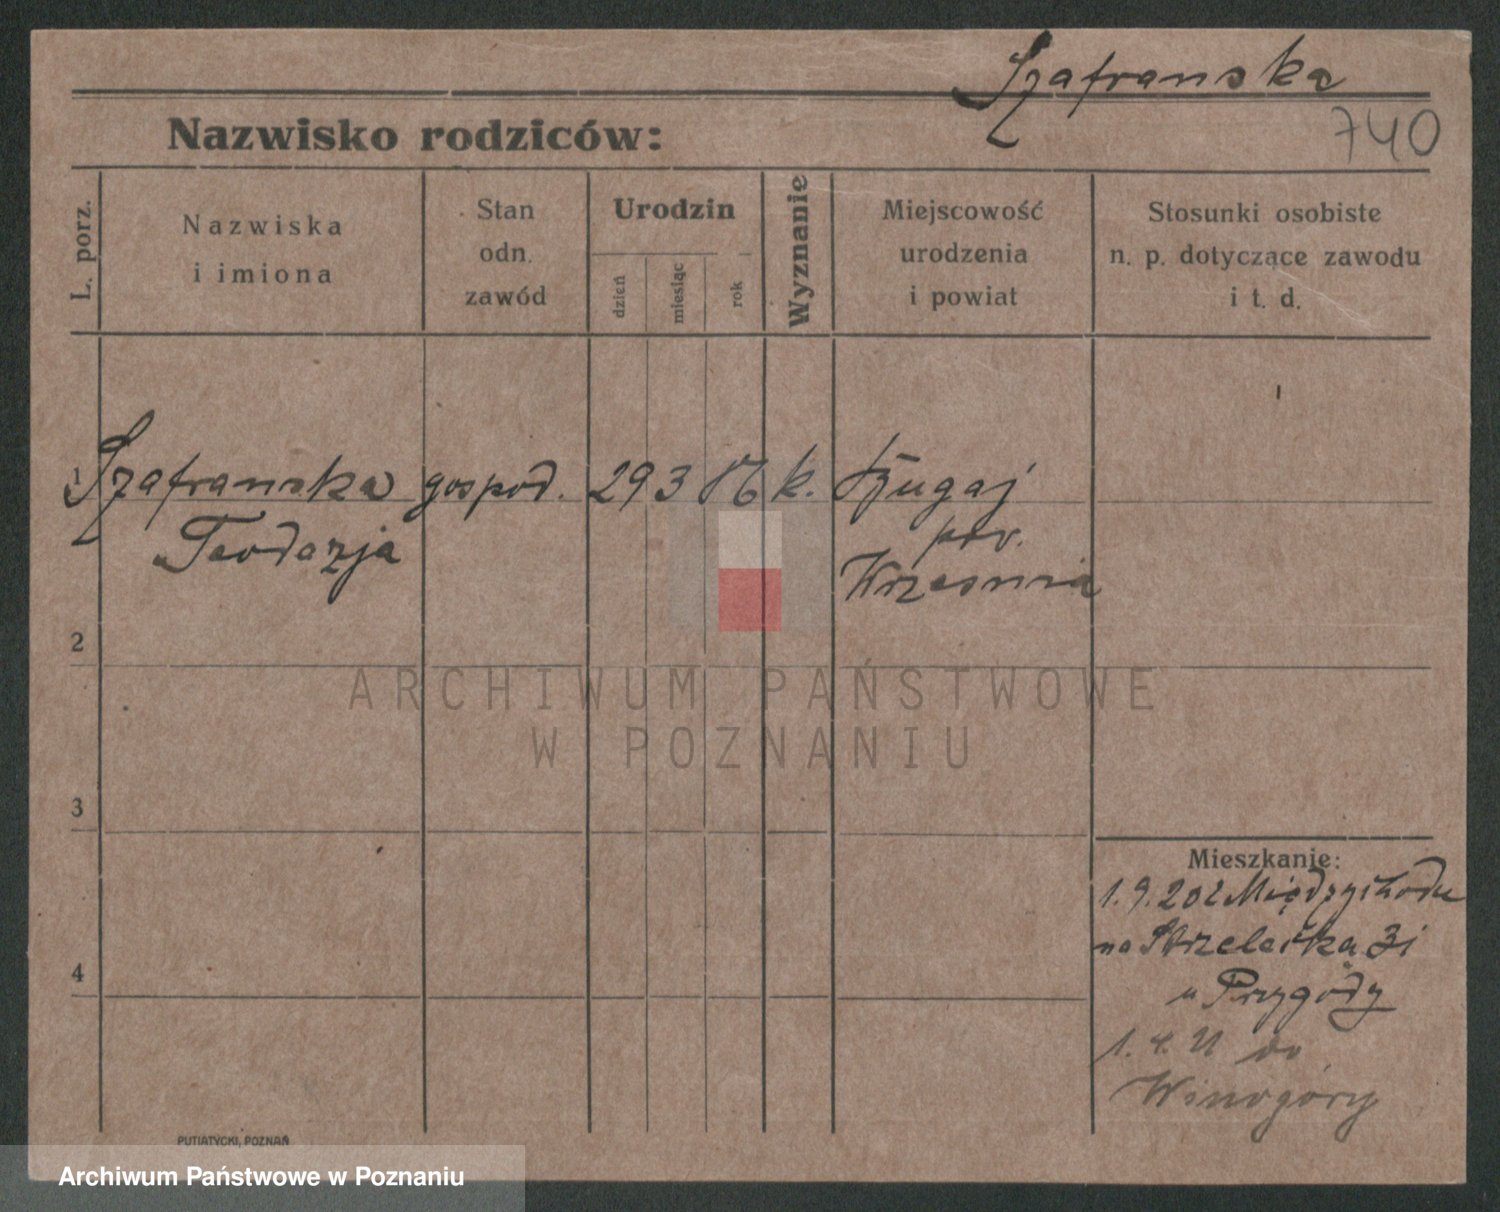 Szafranska
740
Nazwisko rodziców:
L. porz.
Nazwiska
i imiona
Stan
odn.
zawód
Urodzin
dzień
miesiąc
rok
Wyznanie
Miejscowość
urodzenia
i powiat
Stosunki osobiste
n. p. dotyczące zawodu
i t. d.
1 Szafranska gospod. 29 3 k.
Teodozja
pow.
Wrzesnia
2
ARCHIWUM PAŃSTWOWE
W POZNANIU
3
Mieszkanie:
1.9.20 z Międzychodu
na Strzelecka 31
u Przygody
4
do
Winogóry
PUTIATYCKI, POZNAŃ
Archiwum Państwowe w Poznaniu